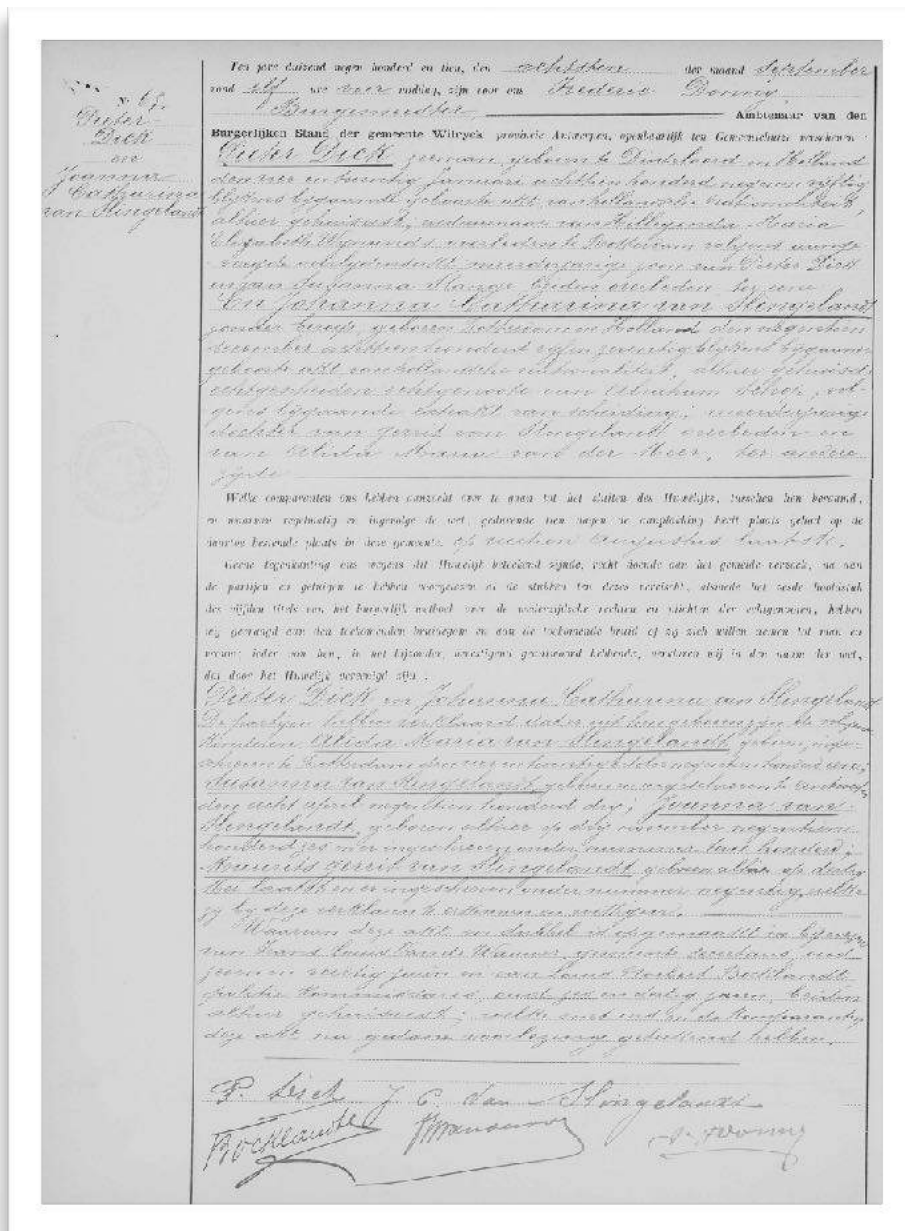 N. 68.
Pieter
Dick
en
Joanna
Catharina
van Slingelandt
Ten jare duizend negen honderd en tien, den achtsten der maand September
rond elf ure voor middag, zijn voor ons Frederic Donny,
Burgemeester Ambtenaar van den
Burgerlijken Stand der gemeente Wilryck provincie Antwerpen, openbaarlijk ten Gemeentehuize verschenen
Pieter Dick, zeeman, geboren te Dinteloord in Holland
den vier en twintig Januari achttien honderd negen en vijftig
blijkens bijgaande geboorte akt, van hollandsche nationaliteit,
alhier gehuisvest, weduwnaar van Hillegonda Maria
Elizabeth overleden te Rotterdam volgens
meerderjarige zoon van Pieter Dick
en van Susanna beiden overleden ter eene
En Johanna Catharina van Slingelandt,
zonder beroep, geboren Rotterdam in Holland den negentien
december achttien honderd vijf en zeventig blijkens bijgaande
geboorte akt van hollandsche nationaliteit, alhier gehuisvest
echtgescheiden echtgenoote van Abraham Schop, vol-
gens bijgaande extrakt van scheiding; meerderjarige
dochter van Gerrit van Slingelandt overleden en
van Alida Maria van der Meer, ter andere
zijde
Welke comparanten ons hebben aanzocht over te gaan tot het sluiten des Huwelijks, tusschen hen beraamd,
en waarvan regelmatig en ingevolge de wet, gedurende tien dagen de aanplakking heeft plaats gehad op de
daartoe bestemde plaats in deze gemeente op Augustus laatst.
Geene tegenkanting ons wegens dit Huwelijk beteekend zijnde, recht doende aan het gemelde verzoek, na aan
de partijen en getuigen te hebben voorgelezen al de stukken ten dezen vereischt, alsmede het zesde hoofdstuk
des vijfden titels van het burgerlijk wetboek over de wederzijdsche rechten en plichten der echtgenooten, hebben
wij gevraagd aan den toekomenden bruidegom en aan de toekomende bruid of zij zich willen nemen tot man en
vrouw; ieder van hen, in het bijzonder, bevestigend geantwoord hebbende, verklaren wij in den naam der wet,
dat door het Huwelijk vereenigd zijn:
Pieter Dick en Johanna Catharina van Slingelandt
De partijen hebben verklaard dat er uit hen geboren zijn de volgende
kinderen Alida Maria van Slingelandt, geboren, inge-
schreven te Rotterdam negentien honderd een;
Susanna van Slingelandt, geboren en ingeschreven te Antwerpen
den acht april negentien honderd drij; Joanna van
Slingelandt, geboren alhier op drij november negentien
honderd zes en er ingeschreven onder nummer twee honderd;
Maurits Gerrit van Slingelandt geboren alhier op dertig
laatst en er ingeschreven onder nummer negentig, welke
zij bij deze verklaren te erkennen en wettigen.
Waarvan deze akt in dubbel is opgemaakt in bijwezen
van Frans gemeente secretaris, oud
en veertig jaren en van Bocklandt
politie kommissaris, oud zes en dertig jaren, beiden
alhier gehuisvest; welke met ons en de komparanten
deze akt na gedane voorlezing geteekend hebben.
P. Dick J. C. van Slingelandt
Bocklandt